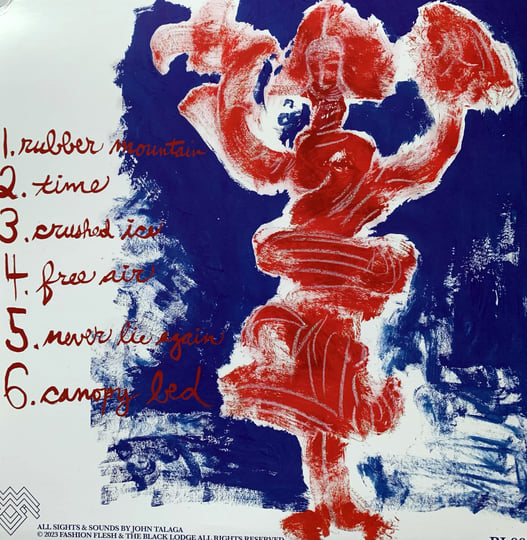 1. rubber mountain
2. time
3. crushed ice
4. free air
5. never lie again
6. canopy bed
ALL SIGHTS & SOUNDS BY JOHN TALAGA
© 2023 FASHION FLESH & THE BLACK LODGE ALL RIGHTS RESERVED